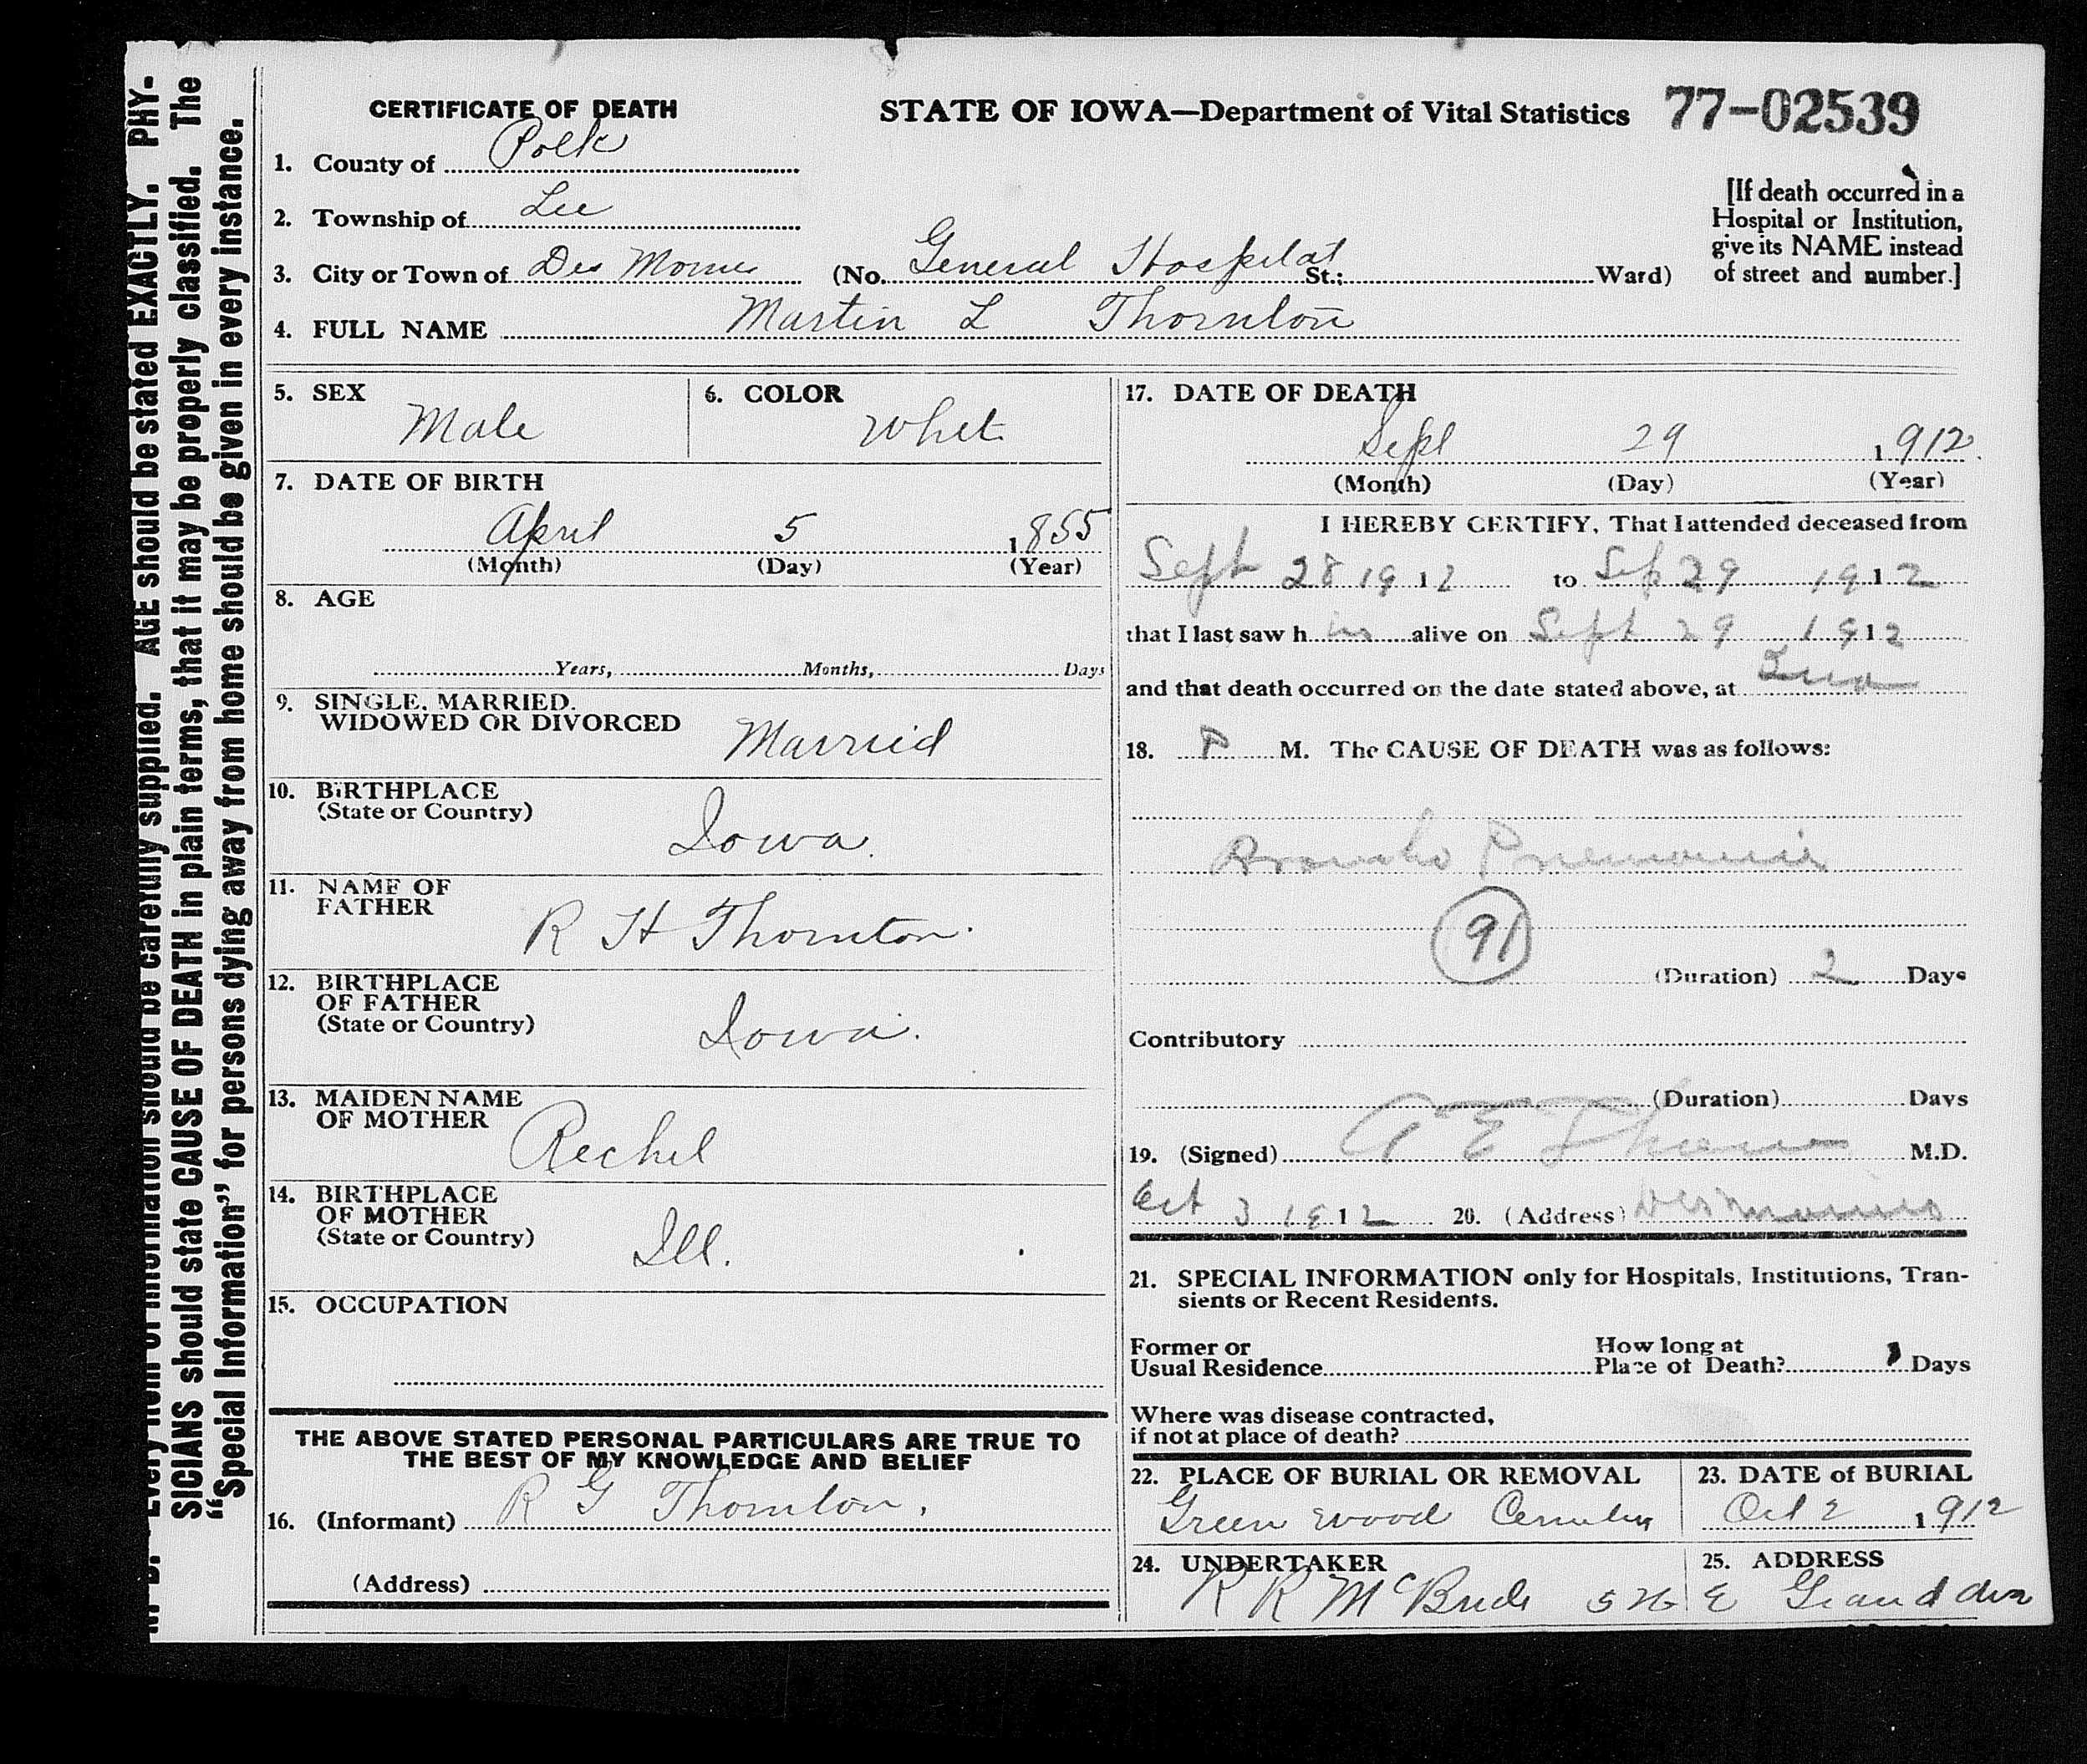 CERTIFICATE OF DEATH
STATE OF IOWA—Department of Vital Statistics 77-02539
1. County of Polk
2. Township of Lee
3. City or Town of Des Moines (No. General Hospital St.; Ward)
[If death occurred in a
Hospital or Institution,
give its NAME instead
of street and number.]
4. FULL NAME Martin L Thornton
5. SEX Male
6. COLOR White
7. DATE OF BIRTH
April 5 1855
(Month) (Day) (Year)
8. AGE
Years, Months, Days
9. SINGLE, MARRIED,
WIDOWED OR DIVORCED Married
10. BIRTHPLACE
(State or Country) Iowa.
11. NAME OF
FATHER R H Thornton.
12. BIRTHPLACE
OF FATHER
(State or Country) Iowa.
13. MAIDEN NAME
OF MOTHER Rechel
14. BIRTHPLACE
OF MOTHER
(State or Country) Ill.
15. OCCUPATION
THE ABOVE STATED PERSONAL PARTICULARS ARE TRUE TO
THE BEST OF MY KNOWLEDGE AND BELIEF
16. (Informant) R G Thornton.
(Address)
17. DATE OF DEATH
Sept 29 1912.
(Month) (Day) (Year)
I HEREBY CERTIFY, That I attended deceased from
Sept 28 1912 to Sep 29 1912
that I last saw h im alive on Sept 29 1912
and that death occurred on the date stated above, at
18. P M. The CAUSE OF DEATH was as follows:
Broncho Pneumonia
91
(Duration) 2 Days
Contributory
(Duration) Days
19. (Signed) A E M.D.
Oct 3 1912 20. (Address) Des Moines
21. SPECIAL INFORMATION only for Hospitals, Institutions, Tran-
sients or Recent Residents.
Former or
Usual Residence
How long at
Place of Death? Days
Where was disease contracted,
if not at place of death?
22. PLACE OF BURIAL OR REMOVAL
Green wood Cemetery
23. DATE of BURIAL
Oct 2 1912
24. UNDERTAKER
R R McBride
25. ADDRESS
526 E Grand Ave
N. B.—Every item of information should be carefully supplied. AGE should be stated EXACTLY. PHY-
SICIANS should state CAUSE OF DEATH in plain terms, that it may be properly classified. The
"Special Information" for persons dying away from home should be given in every instance.